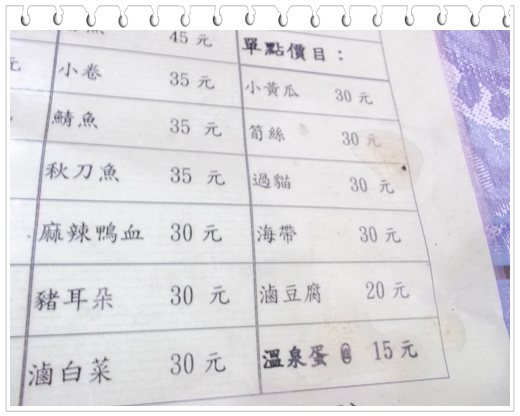 45 元
小卷 35 元
鯖魚 35 元
秋刀魚 35 元
麻辣鴨血 30 元
豬耳朵 30 元
滷白菜 30 元
單點價目：
小黃瓜 30 元
筍絲 30 元
過貓 30 元
海帶 30 元
滷豆腐 20 元
溫泉蛋 15 元